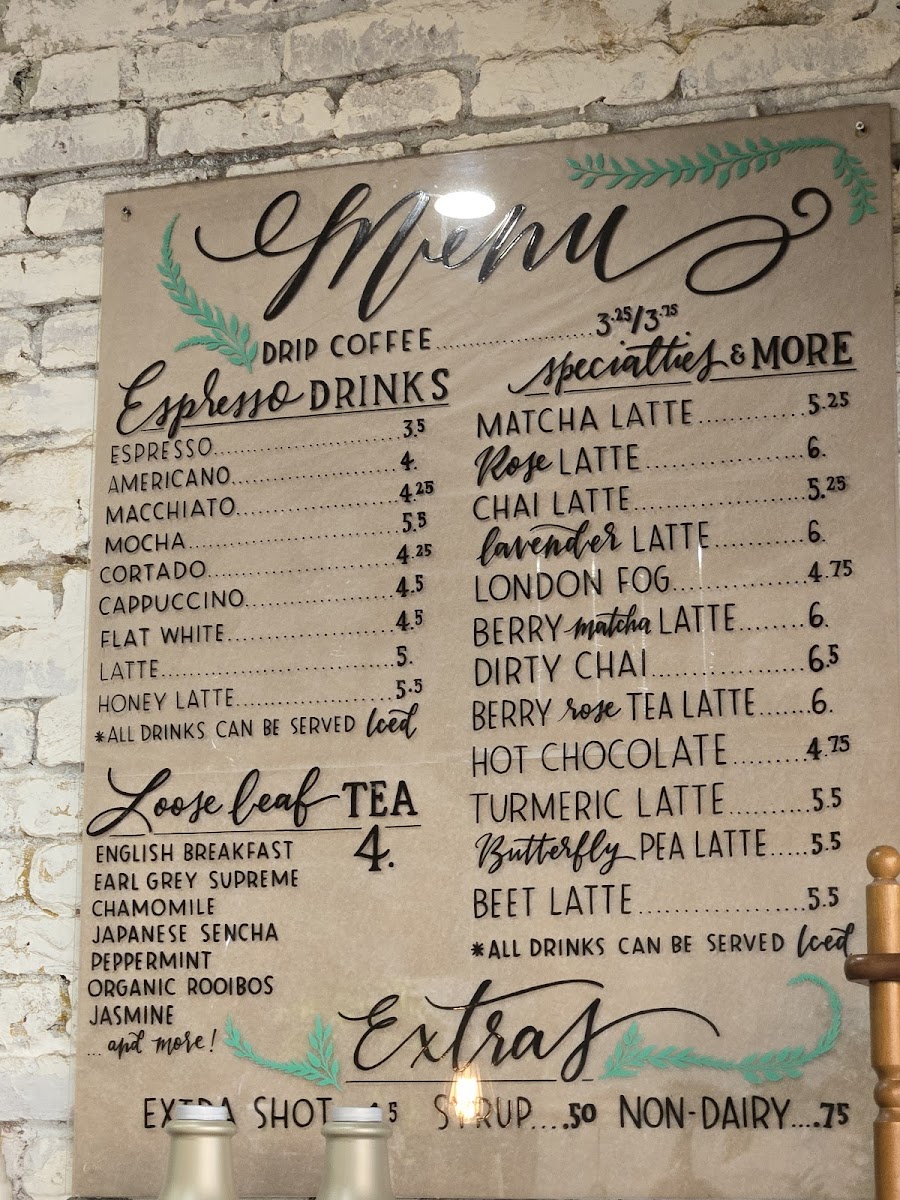 Menu
DRIP COFFEE..................3.25/3.75
Espresso DRINKS
ESPRESSO..................3.5
AMERICANO..................4.
MACCHIATO..................4.25
MOCHA..................5.5
CORTADO..................4.25
CAPPUCCINO..................4.5
FLAT WHITE..................4.5
LATTE..................5.
HONEY LATTE..................5.5
*ALL DRINKS CAN BE SERVED Iced
Loose leaf TEA
4.
ENGLISH BREAKFAST
EARL GREY SUPREME
CHAMOMILE
JAPANESE SENCHA
PEPPERMINT
ORGANIC ROOIBOS
JASMINE
...and more!
specialties & MORE
MATCHA LATTE............5.25
Rose LATTE..................6.
CHAI LATTE..................5.25
lavender LATTE..........6.
LONDON FOG..............4.75
BERRY matcha LATTE.......6.
DIRTY CHAI................6.5
BERRY rose TEA LATTE......6.
HOT CHOCOLATE........4.75
TURMERIC LATTE........5.5
Butterfly PEA LATTE.....5.5
BEET LATTE................5.5
*ALL DRINKS CAN BE SERVED Iced
Extras
EXTRA SHOT SYRUP....50 NON-DAIRY....75